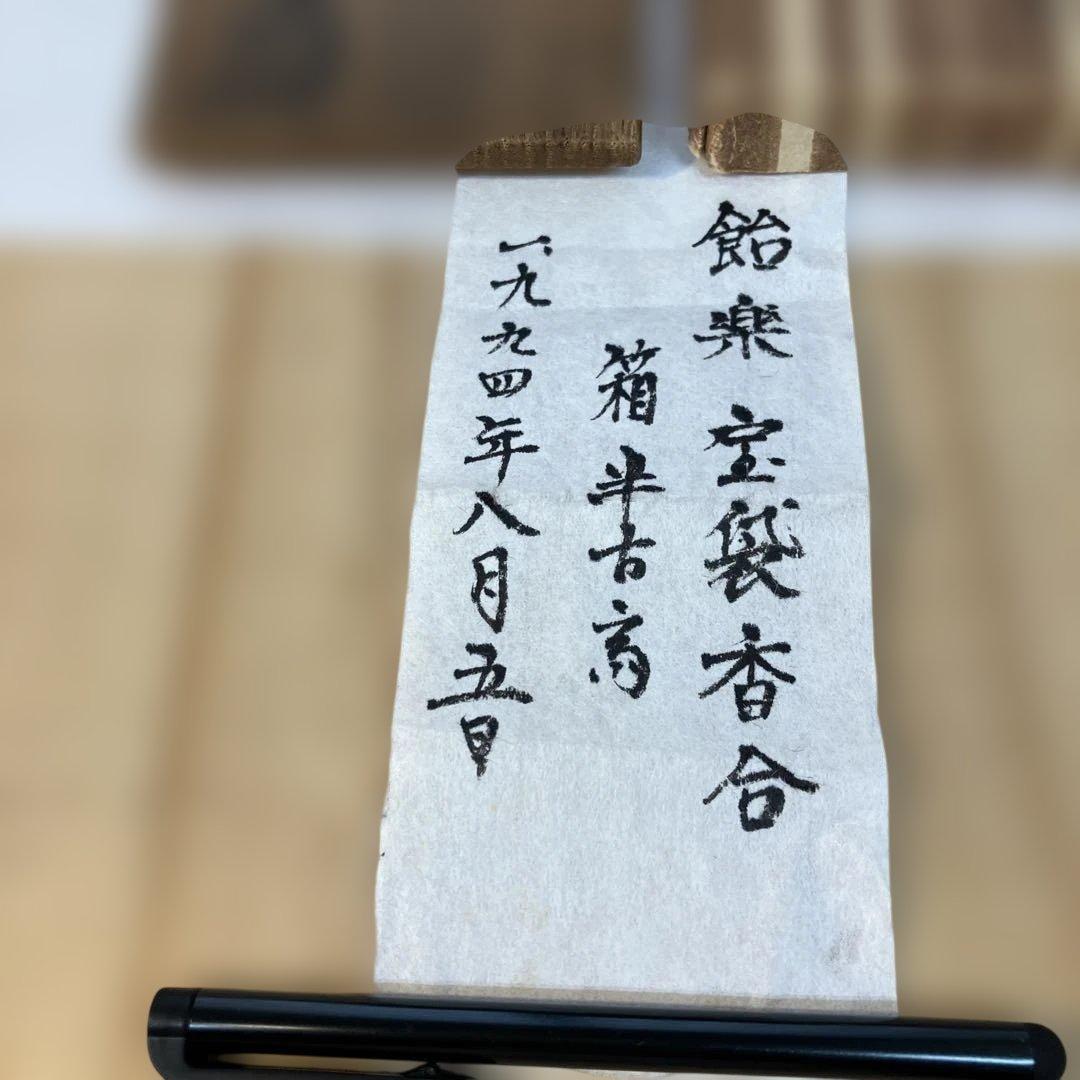 飴楽 宝袋香合
箱半古斎
一九九四年八月五日